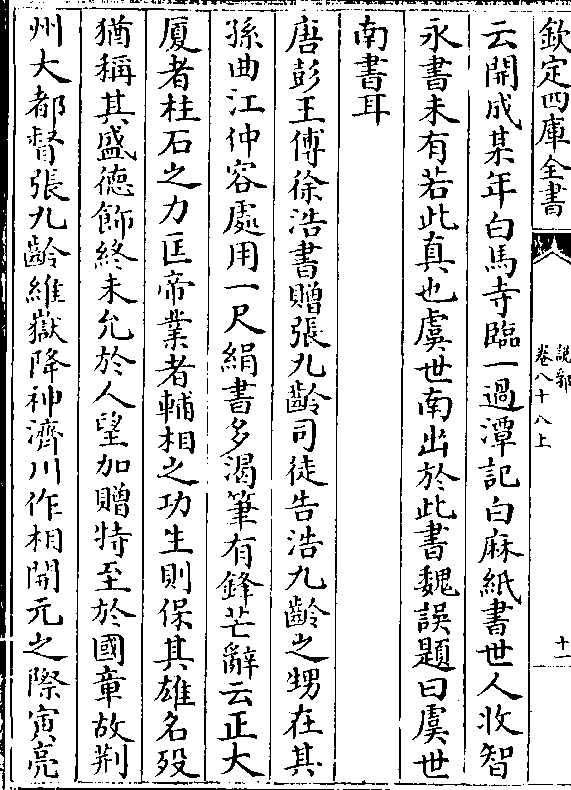 欽定四庫全書
說郛
卷八十八上
十一
云開成某年白馬寺臨一過潭記白麻紙書世人收智
永書未有若此真也虞世南出於此書魏誤題曰虞世
南書耳
唐彭王傅徐浩書贈張九齡司徒告浩九齡之甥在其
孫曲江仲容處用一尺絹書多渴筆有鋒芒辭云正大
厦者柱石之力匡帝業者輔相之功生則保其雄名殁
猶稱其盛德飾終未允於人望加贈特至於國章故荆
州大都督張九齡維嶽降神濟川作相開元之際寅亮